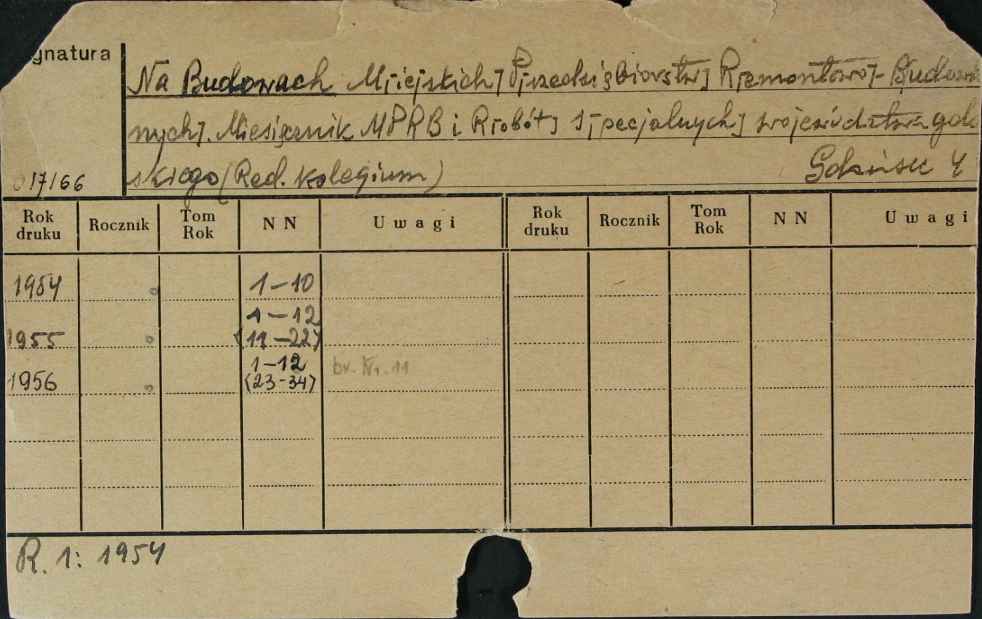 gnatura
Na Budowach M[iejskich] P[rzedsiębiorstw] R[emontowo]-Budow
nych]. Miesięcznik MPRB i R[obót] S[pecjalnych] województwa gdań
skiego (Red. Kolegium) Gdańsk 4
017/66
Rok druku Rocznik Tom Rok N N Uwagi Rok druku Rocznik Tom Rok N N Uwagi
1954 1-10
1-12
1955 (11-22)
1-12 br. Nr. 11
1956 (23-34)
R. 1: 1954